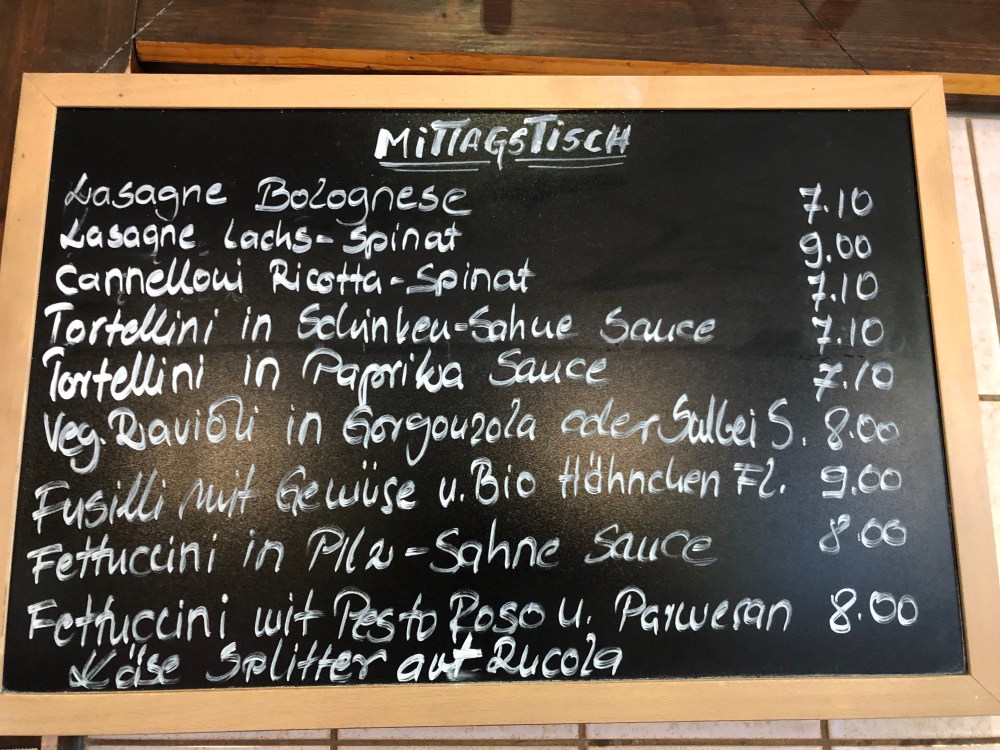 MITTAGSTISCH
Lasagne Bolognese 7.10
Lasagne Lachs-Spinat 9.00
Cannelloni Ricotta-Spinat 7.10
Tortellini in Schinken-Sahne Sauce 7.10
Tortellini in Paprika Sauce 7.10
Veg. Ravioli in Gorgonzola oder Salbei S. 8.00
Fusilli mit Gemüse u. Bio Hähnchen Fl. 9.00
Fettuccini in Pilz-Sahne Sauce 8.00
Fettuccini mit Pesto Roso u. Parmesan 8.00
Käse Splitter auf Rucola